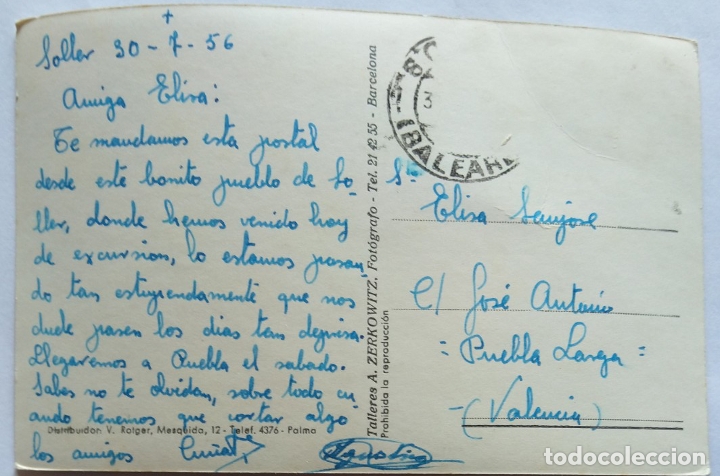 +
Soller 30-7-56
Amiga Elisa:
Te mandamos esta postal
desde este bonito pueblo de So-
ller, donde hemos venido hoy
de excursion, lo estamos pasan
do tan estupendamente que nos
duele pasen los dias tan deprisa.
Llegaremos a Puebla el sabado.
Sabes no te olvidan, sobre todo cu-
ando tenemos que cortar algo
los amigos
Agustin
Distribuidor: V. Rotger, Mesquida, 12 - Telef. 4376 - Palma
Talleres A. ZERKOWITZ, Fotógrafo - Tel. 21 42 55 - Barcelona
Prohibida la reproducción
(BALEARE
Sta
Elisa Sanjose
C/ José Antonio
= Puebla Larga =
-(Valencia)
todocoleccion.net